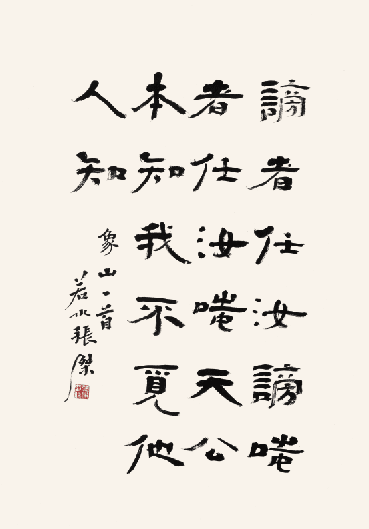 謗者任汝謗嗤
者任汝嗤天公
本知我不覓他
人知
象山一首
若水張傑